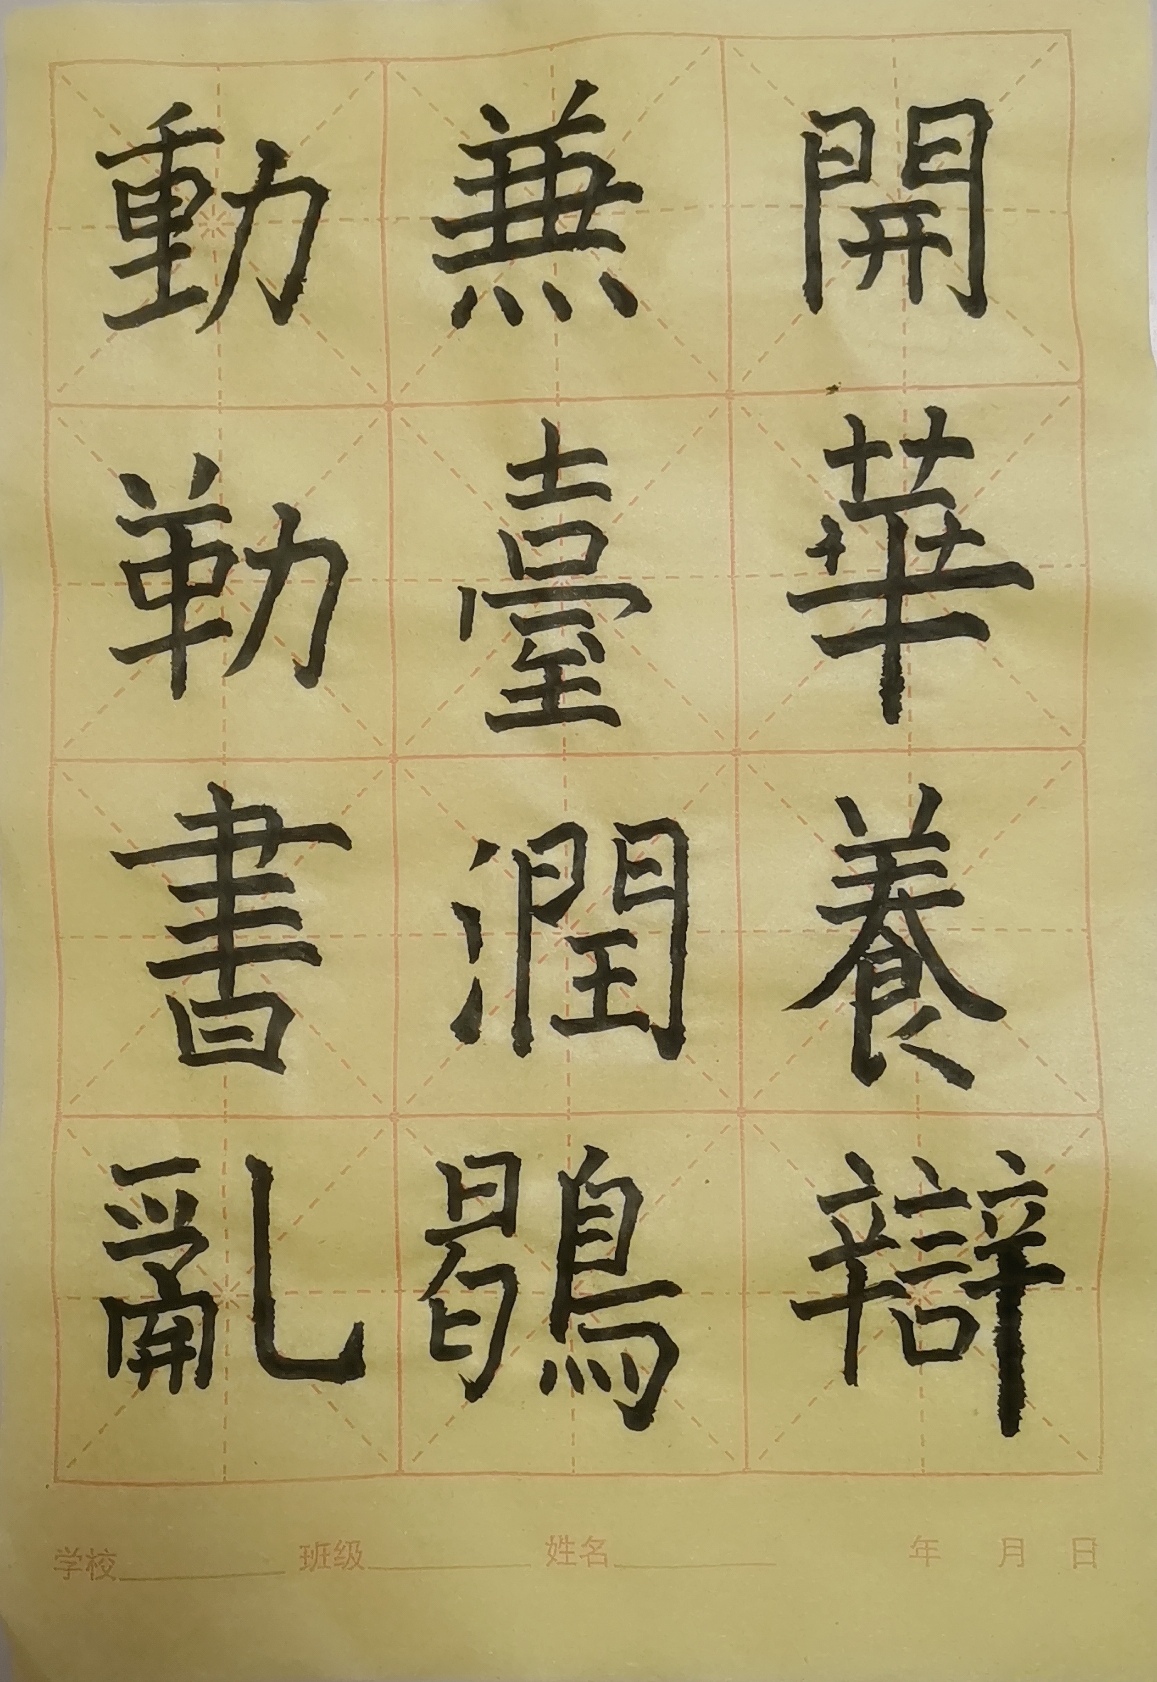 開華養辯
兼臺潤鶡
動勒書亂
学校 班级 姓名 年 月 日